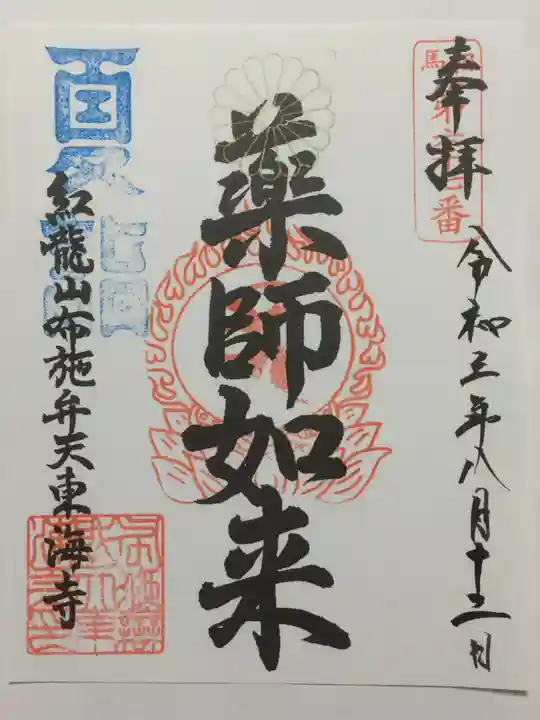 奉拝
令和三年八月十二日
薬師如来
紅龍山布施弁天東海寺